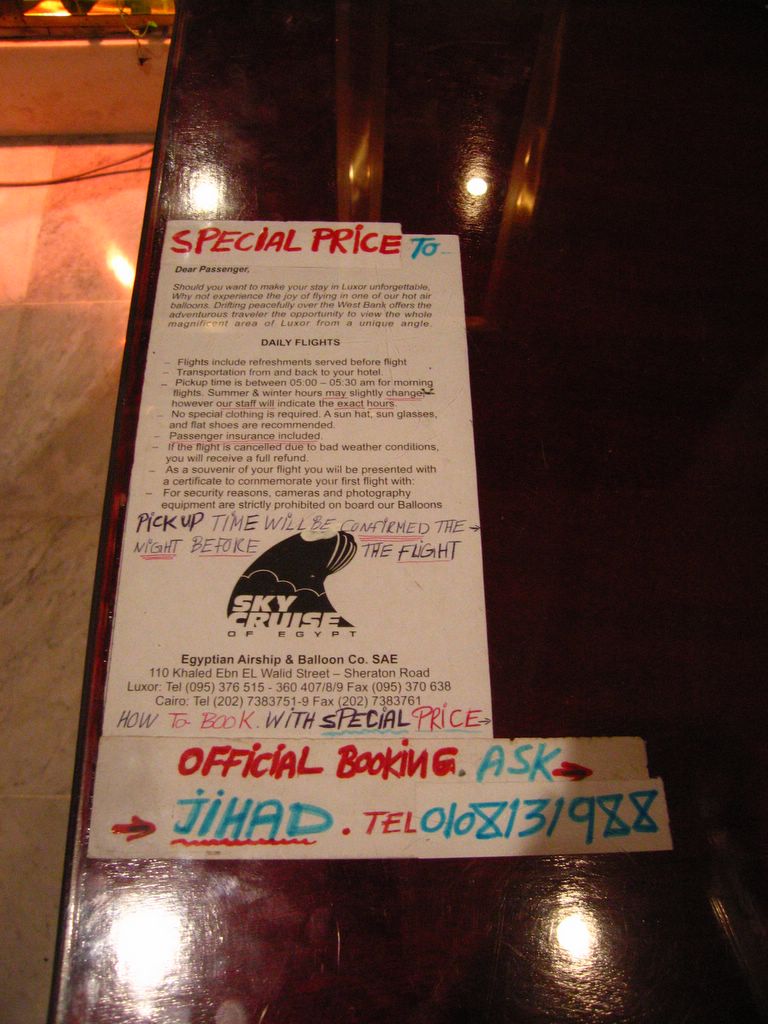 SPECIAL PRICE TO
Dear Passenger,
Should you want to make your stay in Luxor unforgettable,
Why not experience the joy of flying in one of our hot air
balloons. Drifting peacefully over the West Bank offers the
adventurous traveler the opportunity to view the whole
magnificent area of Luxor from a unique angle.
DAILY FLIGHTS
– Flights include refreshments served before flight
– Transportation from and back to your hotel.
– Pickup time is between 05:00 – 05:30 am for morning
flights. Summer & winter hours may slightly change,
however our staff will indicate the exact hours.
– No special clothing is required. A sun hat, sun glasses,
and flat shoes are recommended.
– Passenger insurance included.
– If the flight is cancelled due to bad weather conditions,
you will receive a full refund.
– As a souvenir of your flight you will be presented with
a certificate to commemorate your first flight with:
– For security reasons, cameras and photography
equipment are strictly prohibited on board our Balloons
PICK UP TIME WILL BE CONFIRMED THE →
NIGHT BEFORE THE FLIGHT
SKY
CRUISE
OF EGYPT
Egyptian Airship & Balloon Co. SAE
110 Khaled Ebn EL Walid Street – Sheraton Road
Luxor: Tel (095) 376 515 - 360 407/8/9 Fax (095) 370 638
Cairo: Tel (202) 7383751-9 Fax (202) 7383761
HOW To BOOK. WITH SPECIAL PRICE →
OFFICIAL BOOKING. ASK →
→ JIHAD. TEL 0108131988